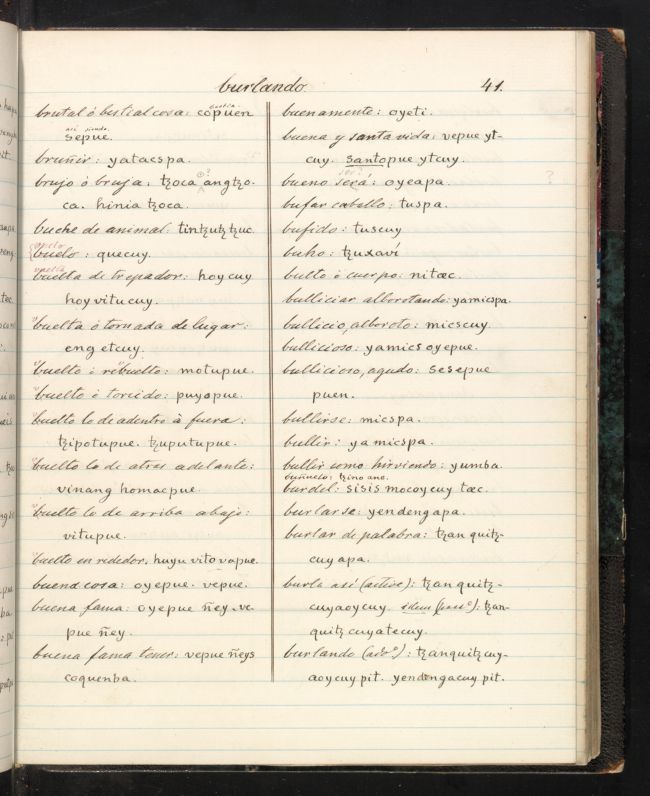 burlando 41.
brutal ó bestial cosa: copuen
sepue.
bruñir: yatacspa.
brujo ó bruja: tzoca angtzo-
ca. hinia tzoca.
buche de animal. tintzutztzuc.
buelo: quecuy.
vuelta de trepador: hoycuy
hoyvitucuy.
buelta ó tornada de lugar:
eng etcuy.
buelto ó rebuelto: motupue.
buelto ó torcido: puyopue.
buelto lo de adentro à fuera:
tzipotupue. tzuputupue.
buelto lo de atras adelante:
vinang homacpue.
buelto lo de arriba abajo:
vitupue.
buelto en rededor, huyu vitovapue.
buena cosa: oyepue. vepue.
buena fama: oyepue ñey. ve-
pue ñey.
buena fama tener: vepue ñeys
coquenba.
buenamente: oyeti.
buena y santa vida: vepue yt-
cuy. santopue ytcuy.
bueno será: oyeapa.
bufar caballo: tuspa.
bufido: tuscuy
buho: tzuxaví
bulto ó cuerpo: nitæc.
bulliciar alborotando: yamicspa.
bullicio, alboroto: micscuy.
bullicioso: yamicsoyepue.
bullicioso, agudo: sesepue
puen.
bullirse: micspa.
bullir: yamicspa.
bullir como hirviendo: yumba
buñuelo: tzino ane.
burdel: sisis mocoycuy tæc.
burlarse: yendengapa.
burlar de palabra: tzan quitz-
cuyapa.
burla así (active): tzan quitz-
cuyaoycuy. idem (passe): tzan-
quitz cuyatecuy.
burlando (ado): tzanquitzcuy-
aoycuy pit. yendengacuy pit.